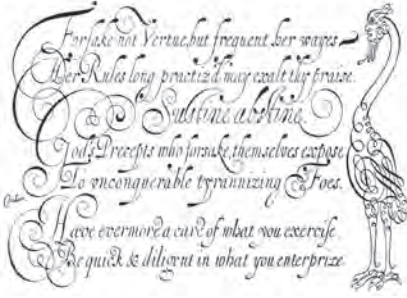 Forsake not Vertue, but frequent her wayes
Her Rules long practiz'd may exalt thy praise.
Sustine abstine.
God's Precepts who forsake, themselves expose
To vnconquerable tyrannizing Foes.
Have evermore a care of what you exercise,
Be quick & diligent in what you enterprize